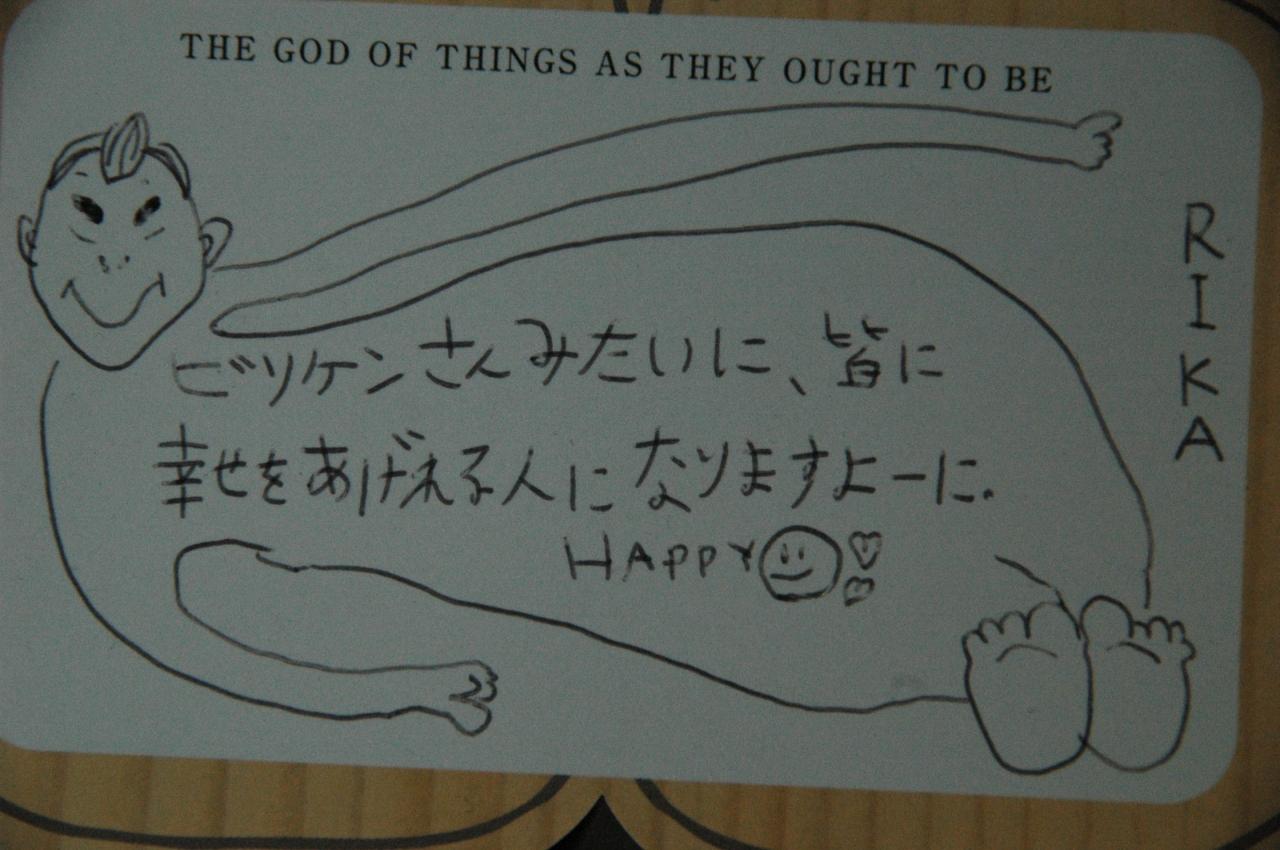 THE GOD OF THINGS AS THEY OUGHT TO BE
ビリケンさんみたいに、皆に
幸せをあげれる人になりますよーに.
HAPPY
RIKA